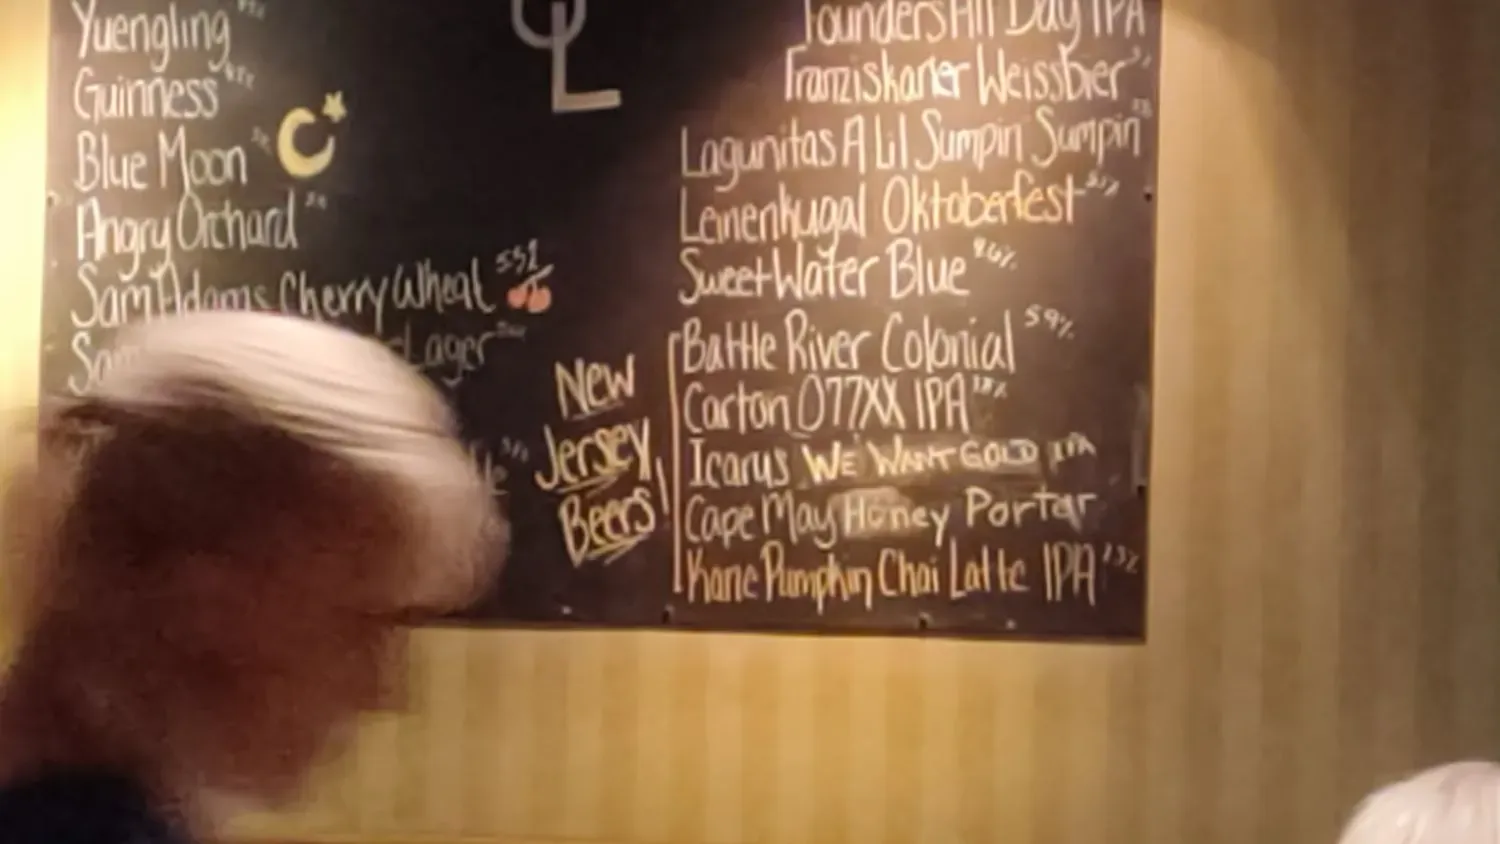 Yuengling
Guinness
Blue Moon
Angry Orchard
Sam Adams Cherry Wheat
Lager
OL
Founders All Day IPA
Franziskaner Weissbier
Lagunitas A Lil Sumpin Sumpin
Leinenkugal Oktoberfest
SweetWater Blue
New
Jersey
Beers
Battle River Colonial 5.9%
Carton 077XX IPA
Icarus WE WANT GOLD IPA
Cape May Honey Porter
Kane Pumpkin Chai Latte IPA